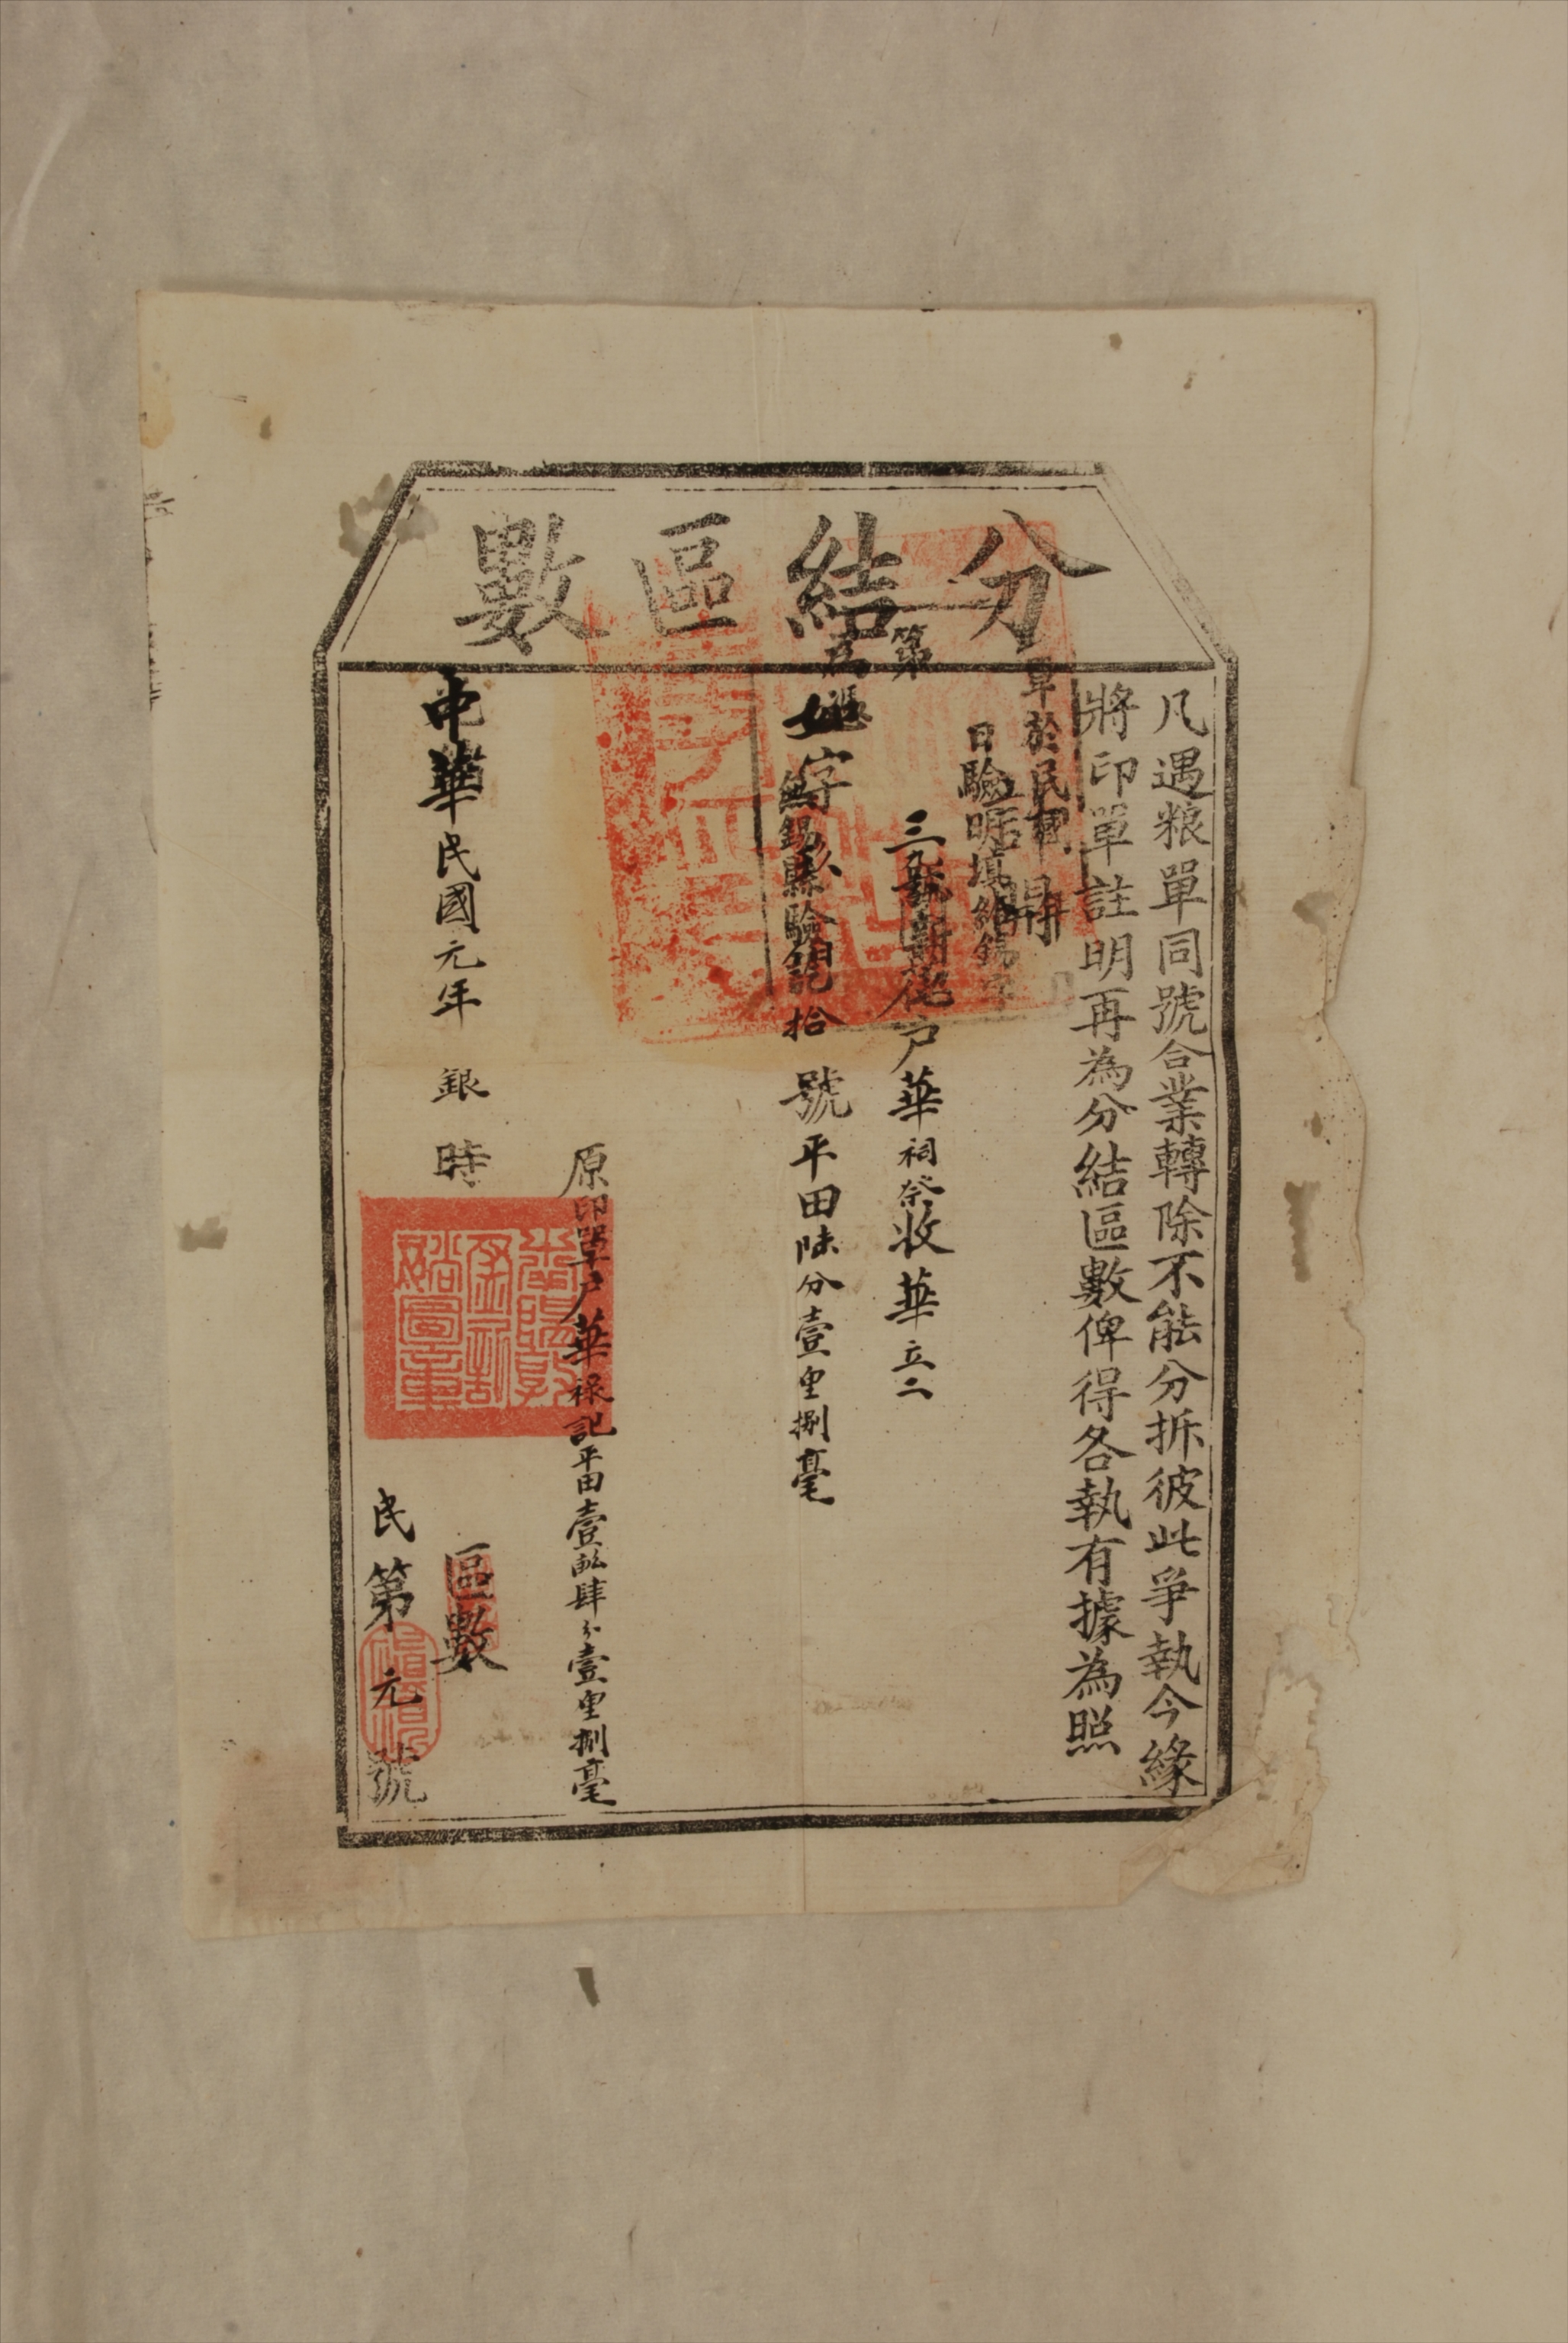 分結區數
凡遇粮單同號合業轉除不能分拆彼此爭執今緣
將印單註明再為分結區數俾得各執有據為照
單於民國
日驗明填給錫字
第
三 號
戶華祠祭收華立二
為憑
字
無錫縣驗訖
拾號平田陸分壹里捌毫
原印單戶華祿記平田壹畝肆分壹里捌毫
中華民國元年 銀 時
區數
民第元號